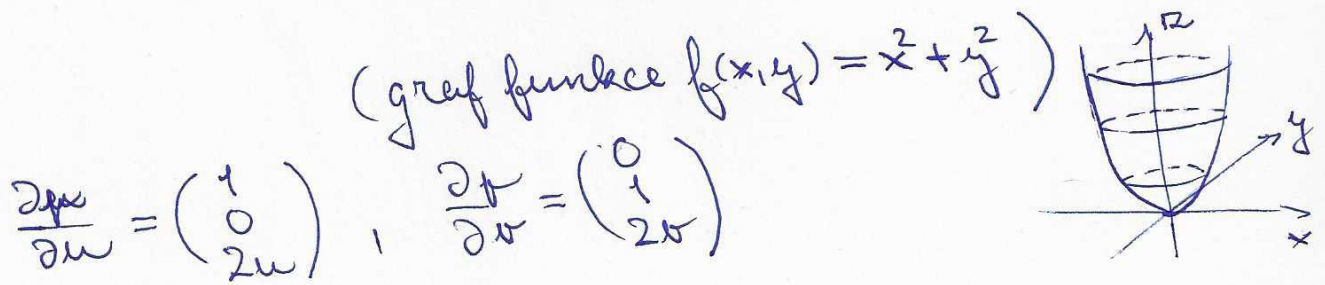 (graf funkce f(x,y) = x² + y²)
z
y
x
∂p/∂u = (1 0 2u), ∂p/∂v = (0 1 2v)